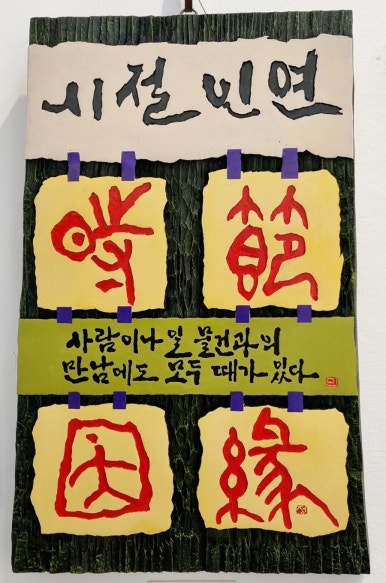 시절인연
時節
사람이나 일 물건과의
만남에도 모두 때가 있다
因緣